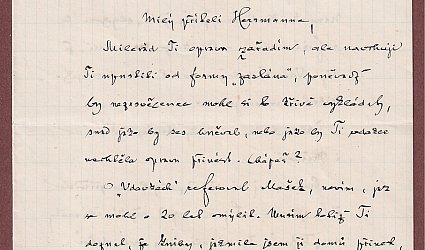 Milý příteli Herrmanne,
Milerád Ti opravu zařadím, ale navrhuji
Ti upustiti od formy „zaslána“, poněvadž
by nezasvěcenec mohl si to křivě vykládati,
snad jako by ses hněval, nebo jako by Ti redakce
nechtěla opravu přinést. Chápeš?
O „Vdovách“ referoval Mašek, nevím, jak
se mohl o 20 let omýliti. Musím totiž Ti
doznati, že knihy, jakmile jsem ji domů přinesl,